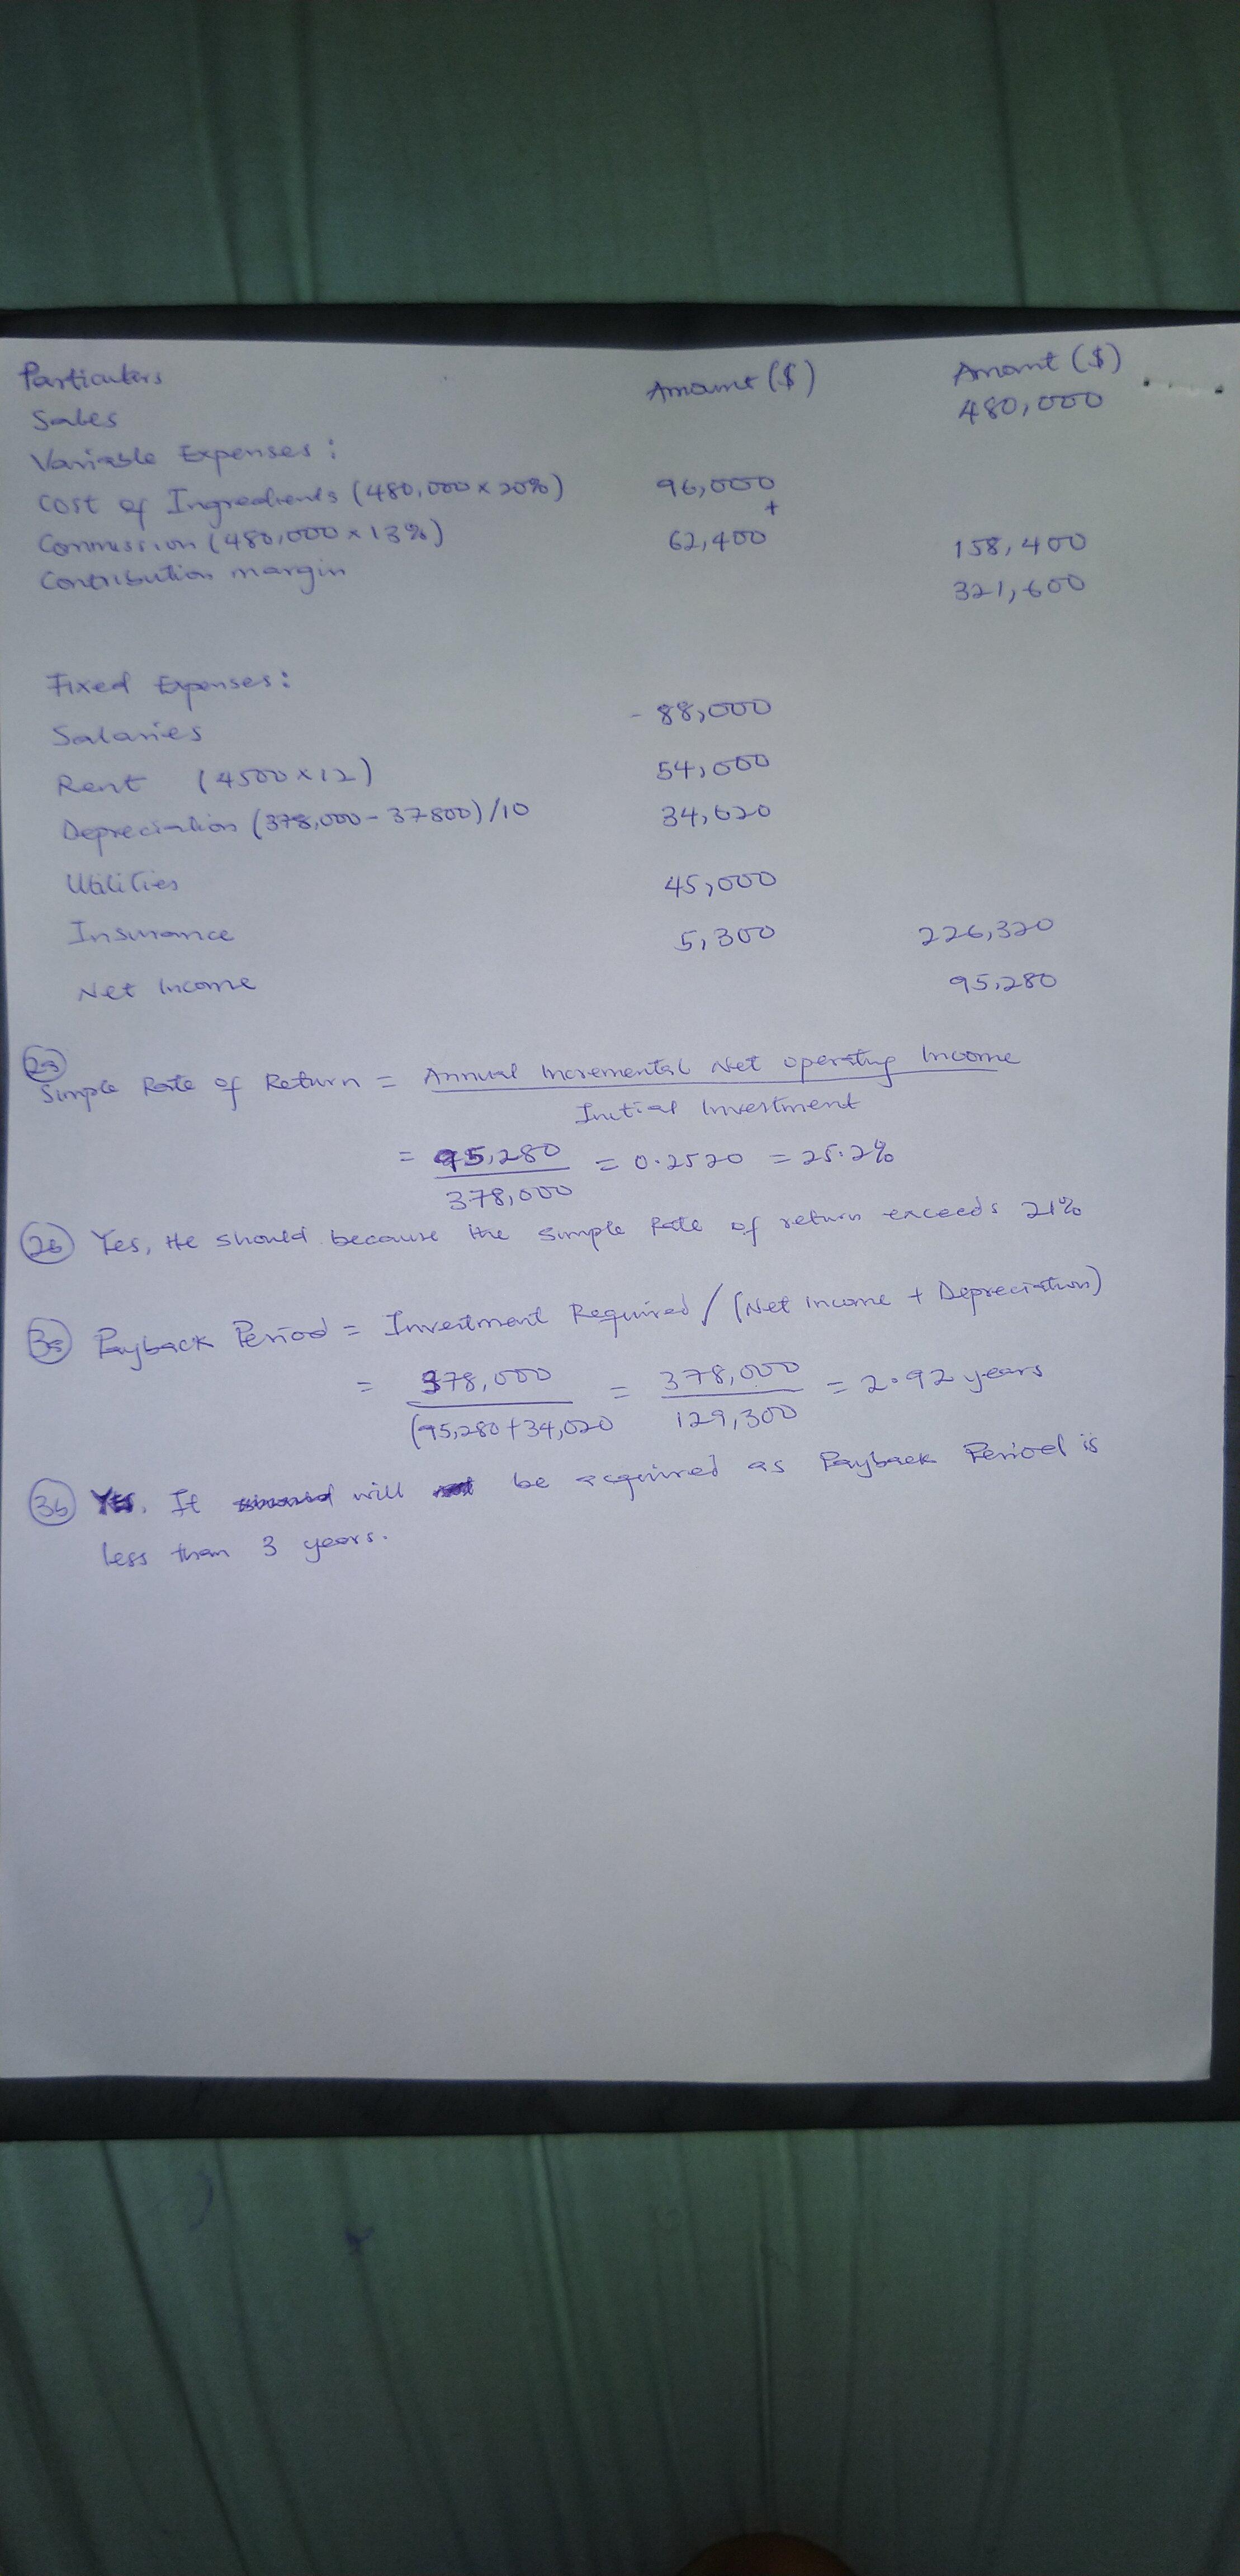 Particulars Amount ($) Amount ($)
Sales 480,000
Variable Expenses :
Cost of Ingredients (480,000 x 20%) 96,000
+
Commission (480,000 x 13%) 62,400 158,400
Contribution margin 321,600
Fixed Expenses :
Salaries - 88,000
Rent (4500 x 12) 54,000
Depreciation (378,000 - 37800) /10 34,020
Utilities 45,000
Insurance 5,300 226,320
Net Income 95,280
2a
Simple Rate of Return = Annual Incremental Net operating Income
Initial Investment
= 95,280 = 0.2520 = 25.2%
378,000
2b Yes, He should because the simple Rate of return exceeds 21%
3a Payback Period = Investment Required / (Net income + Depreciation)
= 378,000 = 378,000 = 2.92 years
(95,280 + 34,020 129,300
3b Yes. It will be acquired as Payback Period is
less than 3 years.